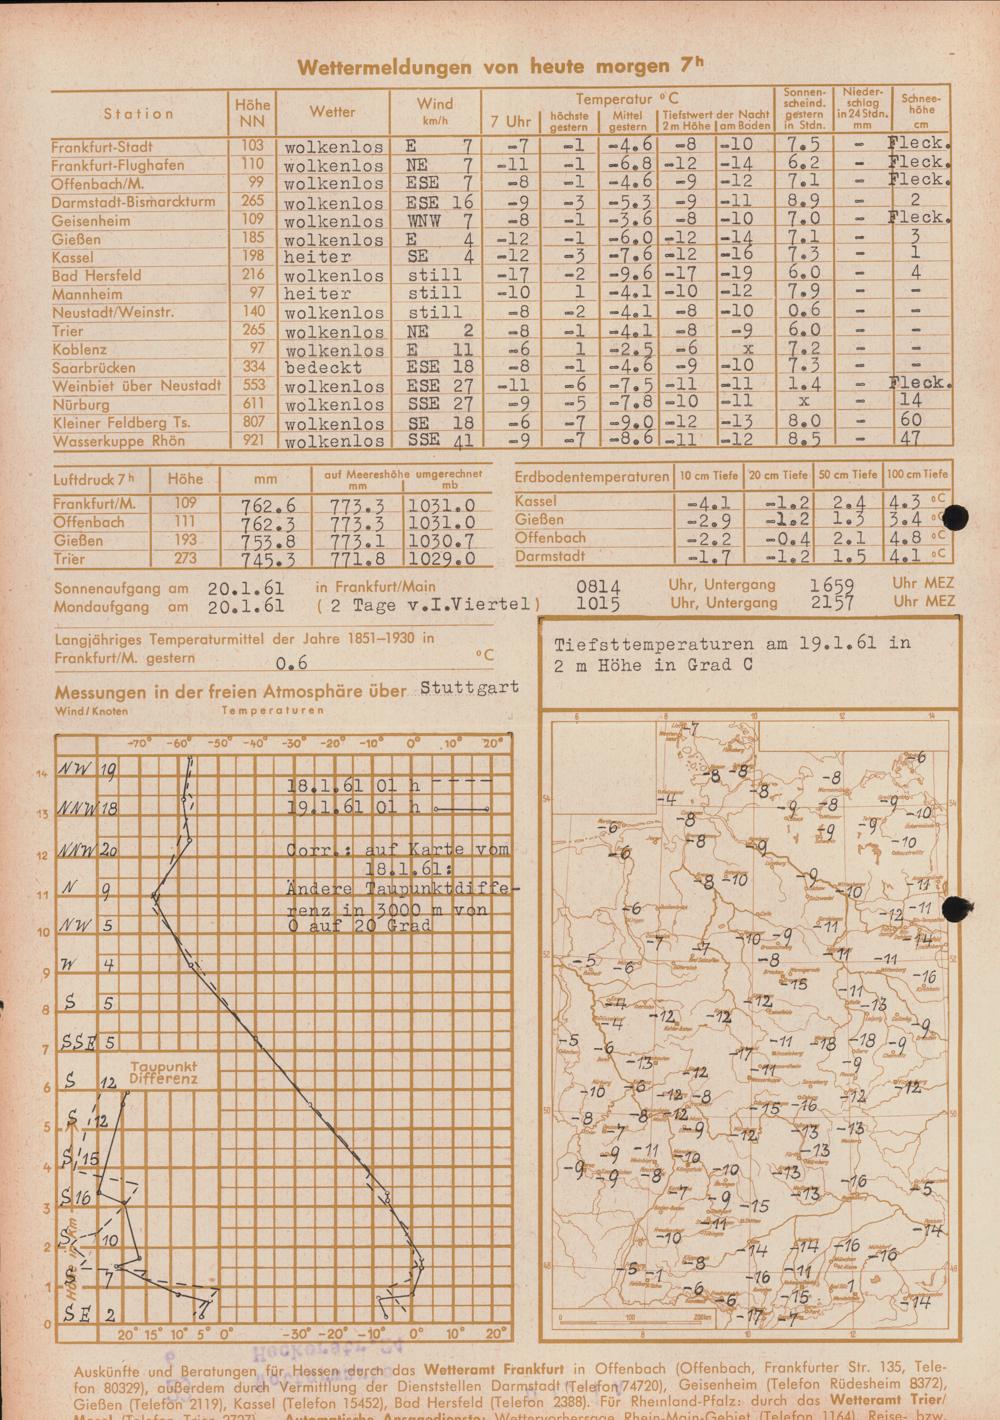 Wettermeldungen von heute morgen 7h
Station Höhe NN Wetter Wind km/h Temperatur °C Sonnenscheind. gestern in Stdn. Niederschlag in 24 Stdn. mm Schneehöhe cm
7 Uhr höchste gestern Mittel gestern Tiefstwert der Nacht 2 m Höhe am Boden
Frankfurt-Stadt 103 wolkenlos E 7 -7 -1 -4.6 -8 -10 7.5 - Fleck.
Frankfurt-Flughafen 110 wolkenlos NE 7 -11 -1 -6.8 -12 -14 6.2 - Fleck.
Offenbach/M. 99 wolkenlos ESE 7 -8 -1 -4.6 -9 -12 7.1 - Fleck.
Darmstadt-Bismarckturm 265 wolkenlos ESE 16 -9 -3 -5.3 -9 -11 8.9 - 2
Geisenheim 109 wolkenlos WNW 7 -8 -1 -3.6 -8 -10 7.0 - Fleck.
Gießen 185 wolkenlos E 4 -12 -1 -6.0 -12 -14 7.1 - 3
Kassel 198 heiter SE 4 -12 -3 -7.6 -12 -16 7.3 - 1
Bad Hersfeld 216 wolkenlos still -17 -2 -9.6 -17 -19 6.0 - 4
Mannheim 97 heiter still -10 1 -4.1 -10 -12 7.9 - -
Neustadt/Weinstr. 140 wolkenlos still -8 -2 -4.1 -8 -10 0.6 - -
Trier 265 wolkenlos NE 2 -8 -1 -4.1 -8 -9 6.0 - -
Koblenz 97 wolkenlos E 11 -6 1 -2.5 -6 x 7.2 - -
Saarbrücken 334 bedeckt ESE 18 -8 -1 -4.6 -9 -10 7.3 - -
Weinbiet über Neustadt 553 wolkenlos ESE 27 -11 -6 -7.5 -11 -11 1.4 - Fleck.
Nürburg 611 wolkenlos SSE 27 -9 -5 -7.8 -10 -11 x - 14
Kleiner Feldberg Ts. 807 wolkenlos SE 18 -6 -7 -9.0 -12 -13 8.0 - 60
Wasserkuppe Rhön 921 wolkenlos SSE 41 -9 -7 -8.6 -11 -12 8.5 - 47
Luftdruck 7h Höhe mm auf Meereshöhe umgerechnet mm mb
Frankfurt/M. 109 762.6 773.3 1031.0
Offenbach 111 762.3 773.3 1031.0
Gießen 193 753.8 773.1 1030.7
Trier 273 745.3 771.8 1029.0
Erdbodentemperaturen 10 cm Tiefe 20 cm Tiefe 50 cm Tiefe 100 cm Tiefe
Kassel -4.1 -1.2 2.4 4.3 °C
Gießen -2.9 -1.2 1.3 3.4 °C
Offenbach -2.2 -0.4 2.1 4.8 °C
Darmstadt -1.7 -1.2 1.5 4.1 °C
Sonnenaufgang am 20.1.61 in Frankfurt/Main 0814 Uhr, Untergang 1659 Uhr MEZ
Mondaufgang am 20.1.61 (2 Tage v.I.Viertel) 1015 Uhr, Untergang 2157 Uhr MEZ
Langjähriges Temperaturmittel der Jahre 1851-1930 in
Frankfurt/M. gestern 0.6 °C
Messungen in der freien Atmosphäre über Stuttgart
Wind/Knoten Temperaturen
-70° -60° -50° -40° -30° -20° -10° 0° 10° 20°
14 NW 19
18.1.61 01 h
13 NNW 18
19.1.61 01 h
12 NNW 20
Corr.: auf Karte vom
18.1.61:
11 N 9
Ändere Taupunktdiffe-
renz in 3000 m von
10 NW 5
0 auf 20 Grad
9 W 4
8 S 5
7 SSE 5
Taupunkt
Differenz
6 S 12
5 S 12
4 S 15
3 S 16
2 S 10
1 S 7
0 SE 2
Höhe in km
20° 15° 10° 5° 0° -30° -20° -10° 0° 10° 20°
Tiefsttemperaturen am 19.1.61 in
2 m Höhe in Grad C
6 8 10 12 14
-7
-6
-8 -8 -8
-8
-4 -9 -8 -9 -10
-6 -8 -9 -9
-6 -8 -9 -10
-8 -10 -9 -10 -11
-6 -11 -12 -11
-7 -7 -10 -9 -14
-5 -6 -8 -11 -11
-15 -16
-4 -12 -11 -13
-4 -12 -12 -9
-5 -6 -11 -18 -18 -9
-13 -17 -11 -9
-10 -6 -12 -12
-12 -8 -15 -16 -12
-8 -8 -12
-7 -9 -12 -13 -13
-9 -11 -10 -13
-9 -9 -8 -10 -13
-7 -9 -13 -16 -5
-15
-11 -14
-10 -14 -14 -16 -16
-5 -1 -8 -16 -11
-6 -6 -15 1 -14
-17 -7
0 100 200km
Auskünfte und Beratungen für Hessen durch das Wetteramt Frankfurt in Offenbach (Offenbach, Frankfurter Str. 135, Tele-
fon 80329), außerdem durch Vermittlung der Dienststellen Darmstadt (Telefon 74720), Geisenheim (Telefon Rüdesheim 8372),
Gießen (Telefon 2119), Kassel (Telefon 15452), Bad Hersfeld (Telefon 2388). Für Rheinland-Pfalz: durch das Wetteramt Trier/
Mosel (Telefon Trier 2727). Automatische Ansagedienste: Wettervorhersage Rhein-Main-Gebiet (Telefon 1164), Reise- bzw.